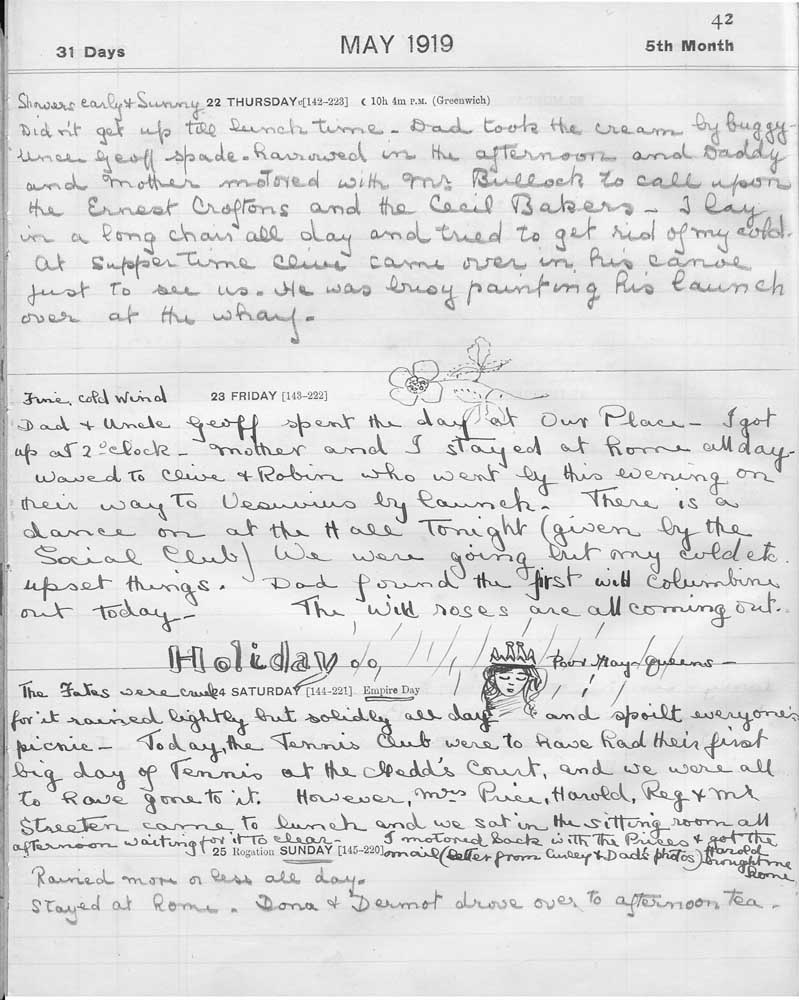 42
31 Days MAY 1919 5th Month
Showers early & Sunny 22 THURSDAY [142-223] ☾ 10h 4m P.M. (Greenwich)
Didn't get up till lunch time - Dad took the cream by buggy -
Uncle Geoff spade-harrowed in the afternoon and Daddy
and Mother motored with Mr. Bullock to call upon
the Ernest Croftons and the Cecil Bakers - I lay
in a long chair all day and tried to get rid of my cold.
At supper time Clive came over in his canoe
just to see us. He was busy painting his launch
over at the wharf.
Fine, cold wind 23 FRIDAY [143-222]
Dad & Uncle Geoff spent the day at Our Place - I got
up at 2 o'clock - Mother and I stayed at home all day -
Waved to Clive & Robin who went by this evening on
their way to Vesuvius by launch. There is a
dance on at the Hall Tonight (given by the
Social Club) We were going but my cold etc.
upset things. Dad found the first wild columbine
out today - The wild roses are all coming out.
Holiday % Poor May Queens -
The Fates were cruel 24 SATURDAY [144-221] Empire Day
for it rained lightly but solidly all day - & and spoilt everyone's
picnic - Today, the Tennis Club were to have had their first
big day of Tennis at the Medd's Court, and we were all
to have gone to it. However, Mrs Price, Harold, Reg & Mr
Streeten came to lunch and we sat in the sitting room all
afternoon waiting for it to clear - I motored back with the Prices & got the
25 Rogation SUNDAY [145-220] mail (letter from Curley & Dad's photos) Harold
brought me
home
Rained more or less all day.
Stayed at home. Dona & Dermot drove over to afternoon tea.